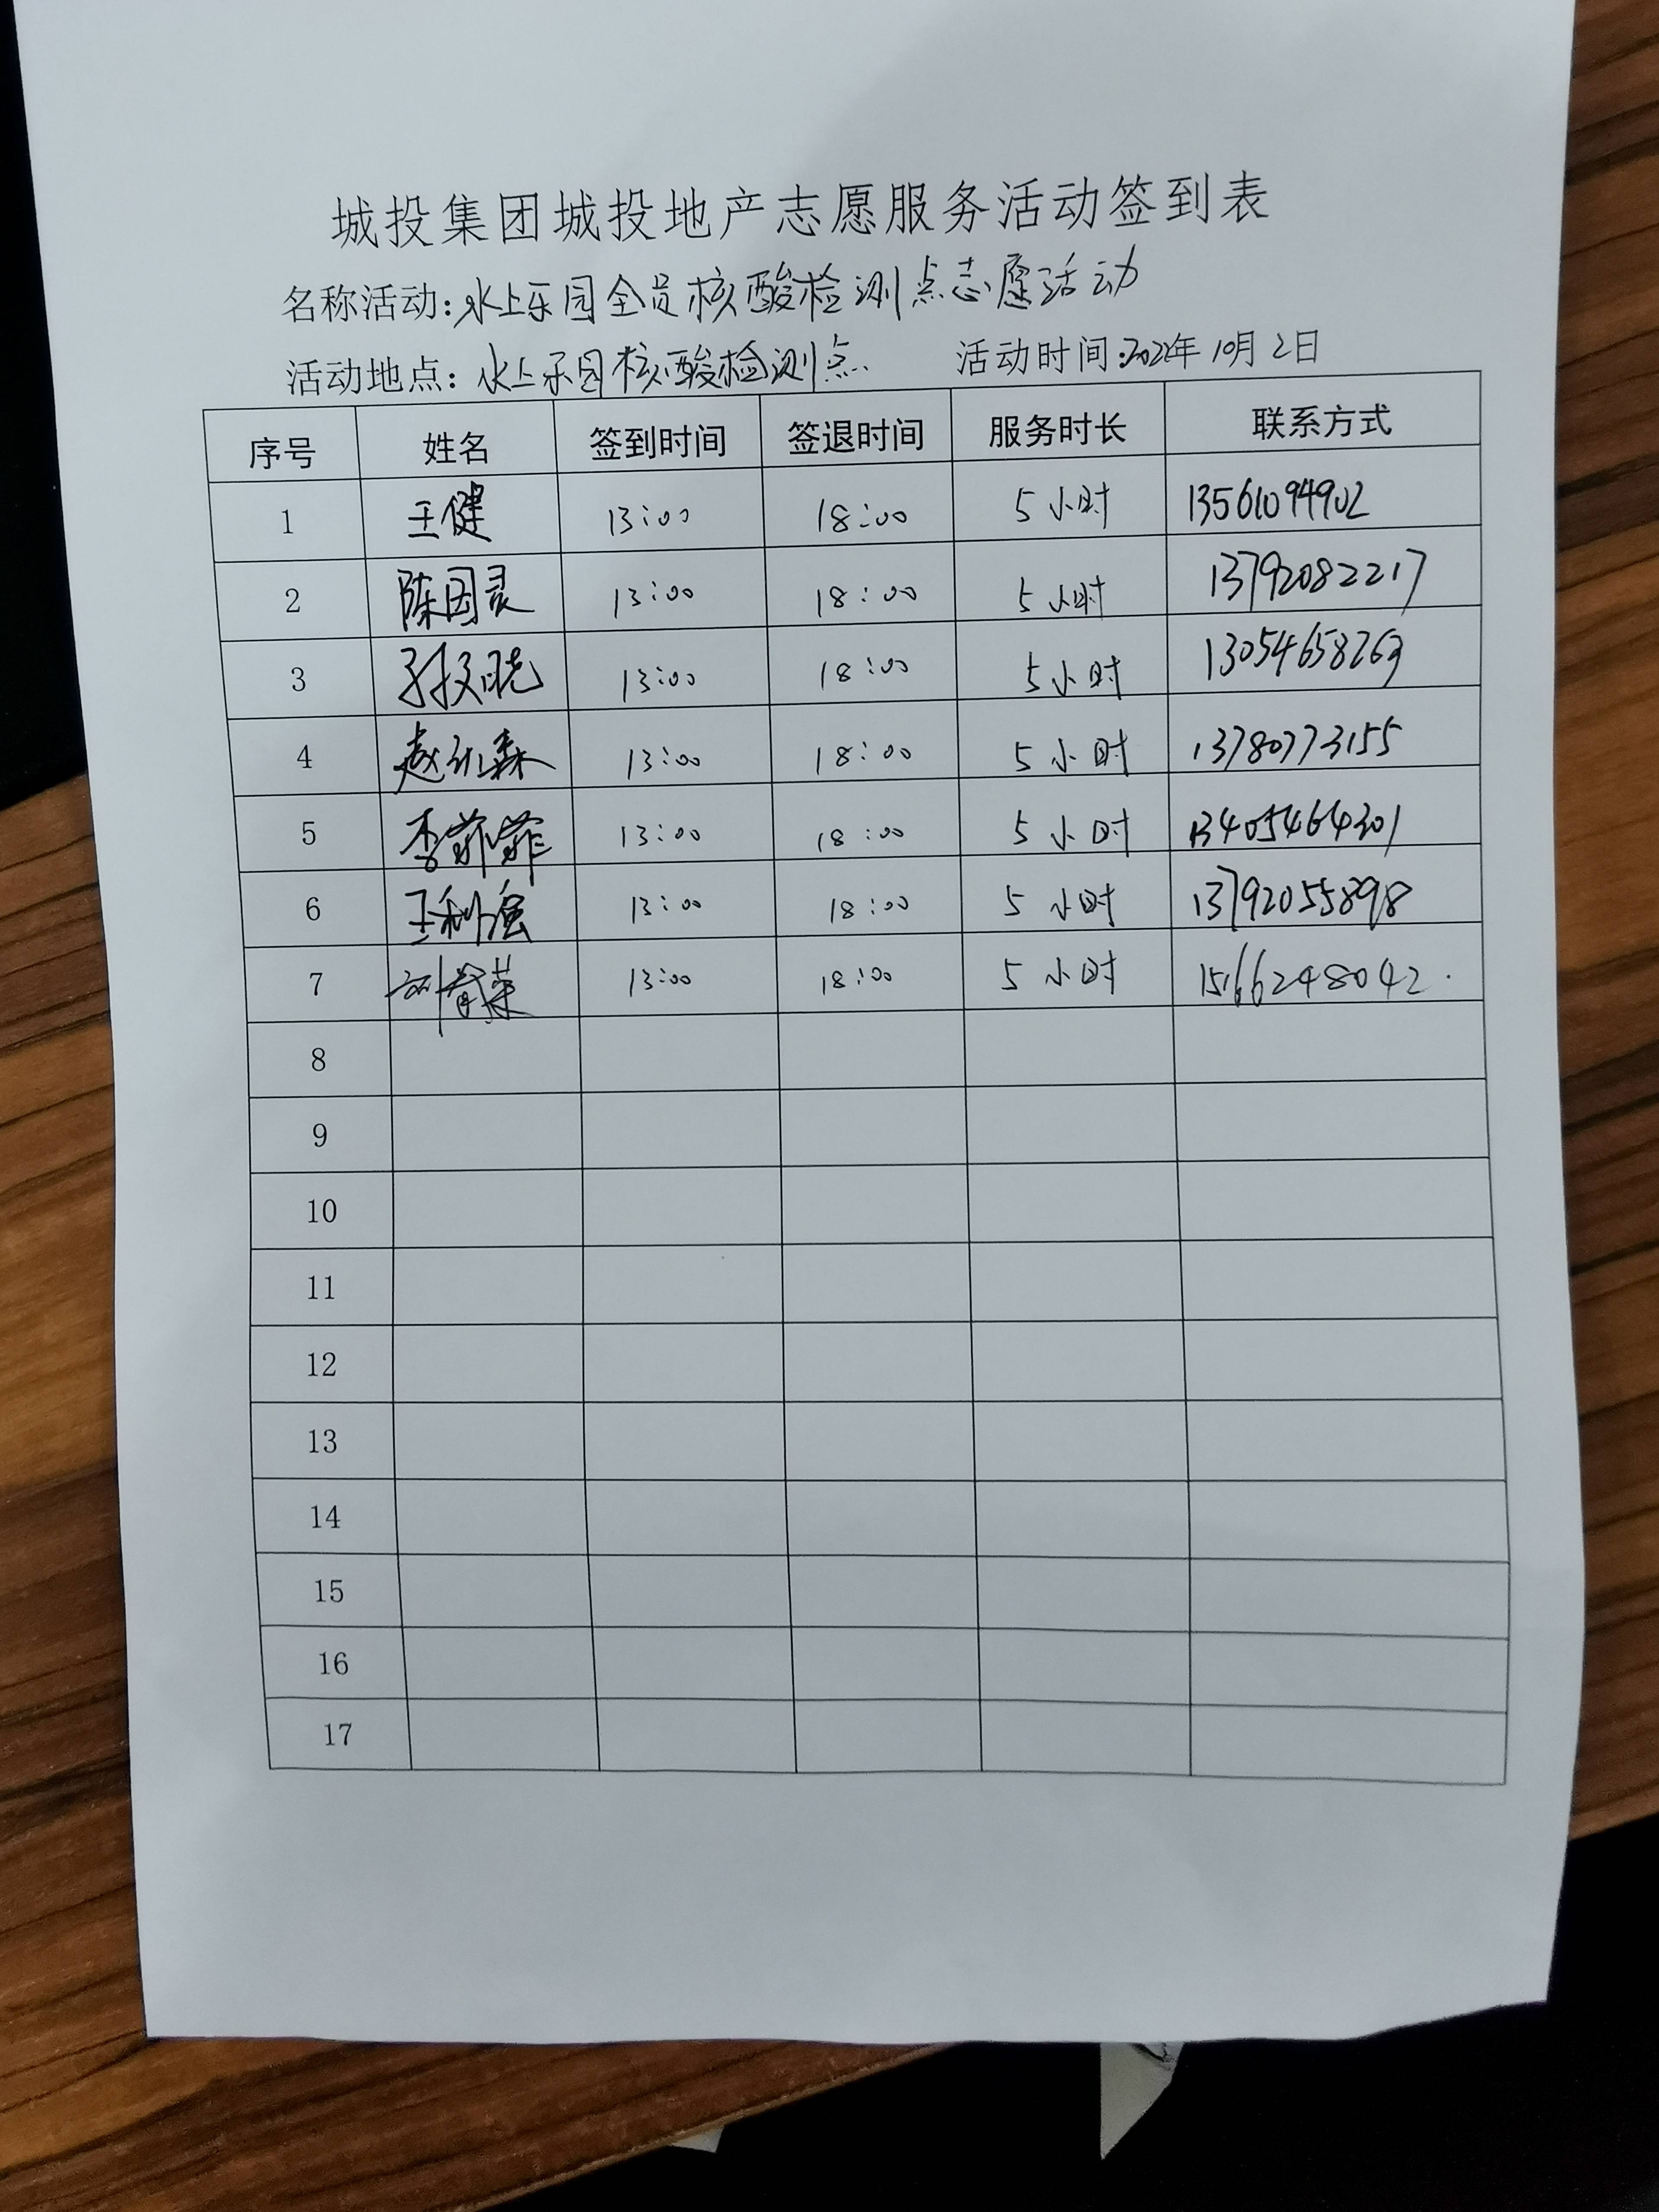 城投集团城投地产志愿服务活动签到表
名称活动:水上乐园全员核酸检测点志愿活动
活动地点:水上乐园核酸检测点 活动时间:2022年10月2日
序号 姓名 签到时间 签退时间 服务时长 联系方式
1 王健 13:00 18:00 5小时 13561094902
2 陈国灵 13:00 18:00 5小时 13792082217
3 13:00 18:00 5小时 13054658263
4 13:00 18:00 5小时 13780773155
5 李菲菲 13:00 18:00 5小时 13405464301
6 王利强 13:00 18:00 5小时 13792055898
7 13:00 18:00 5小时 15166248042.
8
9
10
11
12
13
14
15
16
17